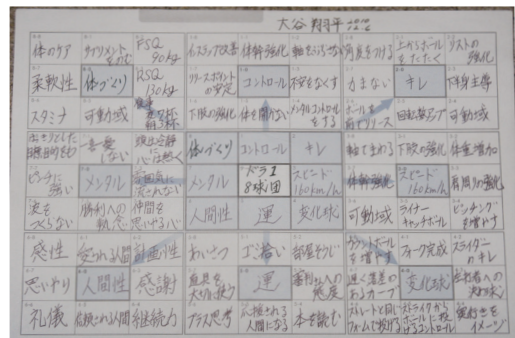 大谷 翔平
体のケア サプリメントをのむ FSQ 90kg インステップ改善 体幹強化 軸をぶらさない 角度をつける 上からボールをたたく リストの強化
柔軟性 体づくり RSQ 130kg リリースポイントの安定 コントロール 不安をなくす 力まない キレ 下半身主導
スタミナ 可動域 食事 夜7杯 朝3杯 下肢の強化 体を開かない メンタルコントロールをする ボールを前でリリース 回転数アップ 可動域
はっきりとした目標、目的をもつ 一喜一憂しない 頭は冷静に心は熱く 体づくり コントロール キレ 軸でまわる 下肢の強化 体重増加
ピンチに強い メンタル 雰囲気に流されない メンタル ドラ1 8球団 スピード160km/h 体幹強化 スピード160km/h 肩周りの強化
波をつくらない 勝利への執念 仲間を思いやる心 人間性 運 変化球 可動域 ライナーキャッチボール ピッチングを増やす
感性 愛される人間 計画性 あいさつ ゴミ拾い 部屋そうじ カウントボールを増やす フォーク完成 スライダーのキレ
思いやり 人間性 感謝 道具を大切に使う 運 審判さんへの態度 遅く落差のあるカーブ 変化球 左打者への決め球
礼儀 信頼される人間 継続力 プラス思考 応援される人間になる 本を読む ストレートと同じフォームで投げる ストライクからボールに投げるコントロール 奥行きをイメージ